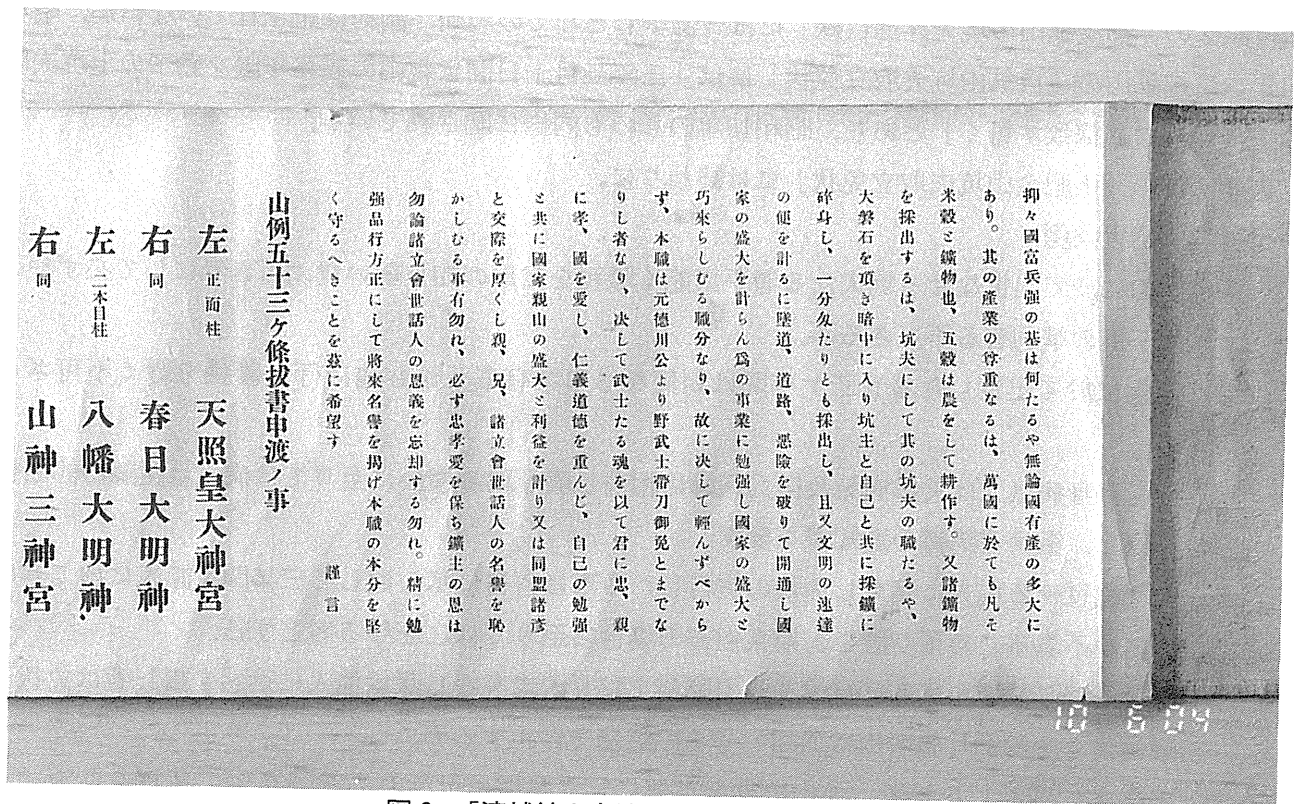 抑々國富兵强の基は何たるや無論國有産の多大に
あり。其の產業の尊重なるは、萬國に於ても凡そ
米穀と鑛物也、五穀は農をして耕作す。又諸鑛物
を採出するは、坑夫にして其の坑夫の職たるや、
大磐石を項き暗中に入り坑主と自己と共に採鑛に
碎身し、一分匁たりとも採出し、且又文明の速達
の便を計るに墜道、道路、惡險を破りて開通し國
家の盛大を計らん爲の事業に勉强し國家の盛大と
巧來らしむる職分なり、故に決して輕んずべから
ず、本職は元德川公より野武士帶刀御免とまでな
りし者なり、決して武士たる魂を以て君に忠、親
に孝、國を愛し、仁義道德を重んじ、自己の勉强
と共に國家親山の盛大と利益を計り又は同盟諸彦
と交際を厚くし親、兄、諸立會世話人の名譽を恥
かしむる事有勿れ、必ず忠孝愛を保ち鑛主の恩は
勿論諸立會世話人の恩義を忘却する勿れ。精に勉
强品行方正にして將來名譽を揭げ本職の本分を堅
く守るへきことを玆に希望す 謹言
山例五十三ケ條拔書申渡ノ事
左 正面柱 天照皇大神宮
右 同 春日大明神
左 二本目柱 八幡大明神
右 同 山神三神宮
10 6 04